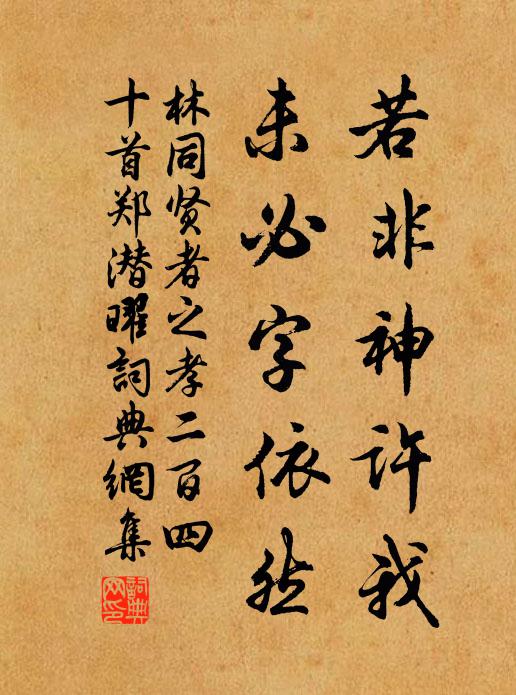 若非神许我
未必字依然
林同贤者之孝二百四
十首郑潜曜詞典網集
詞典网印